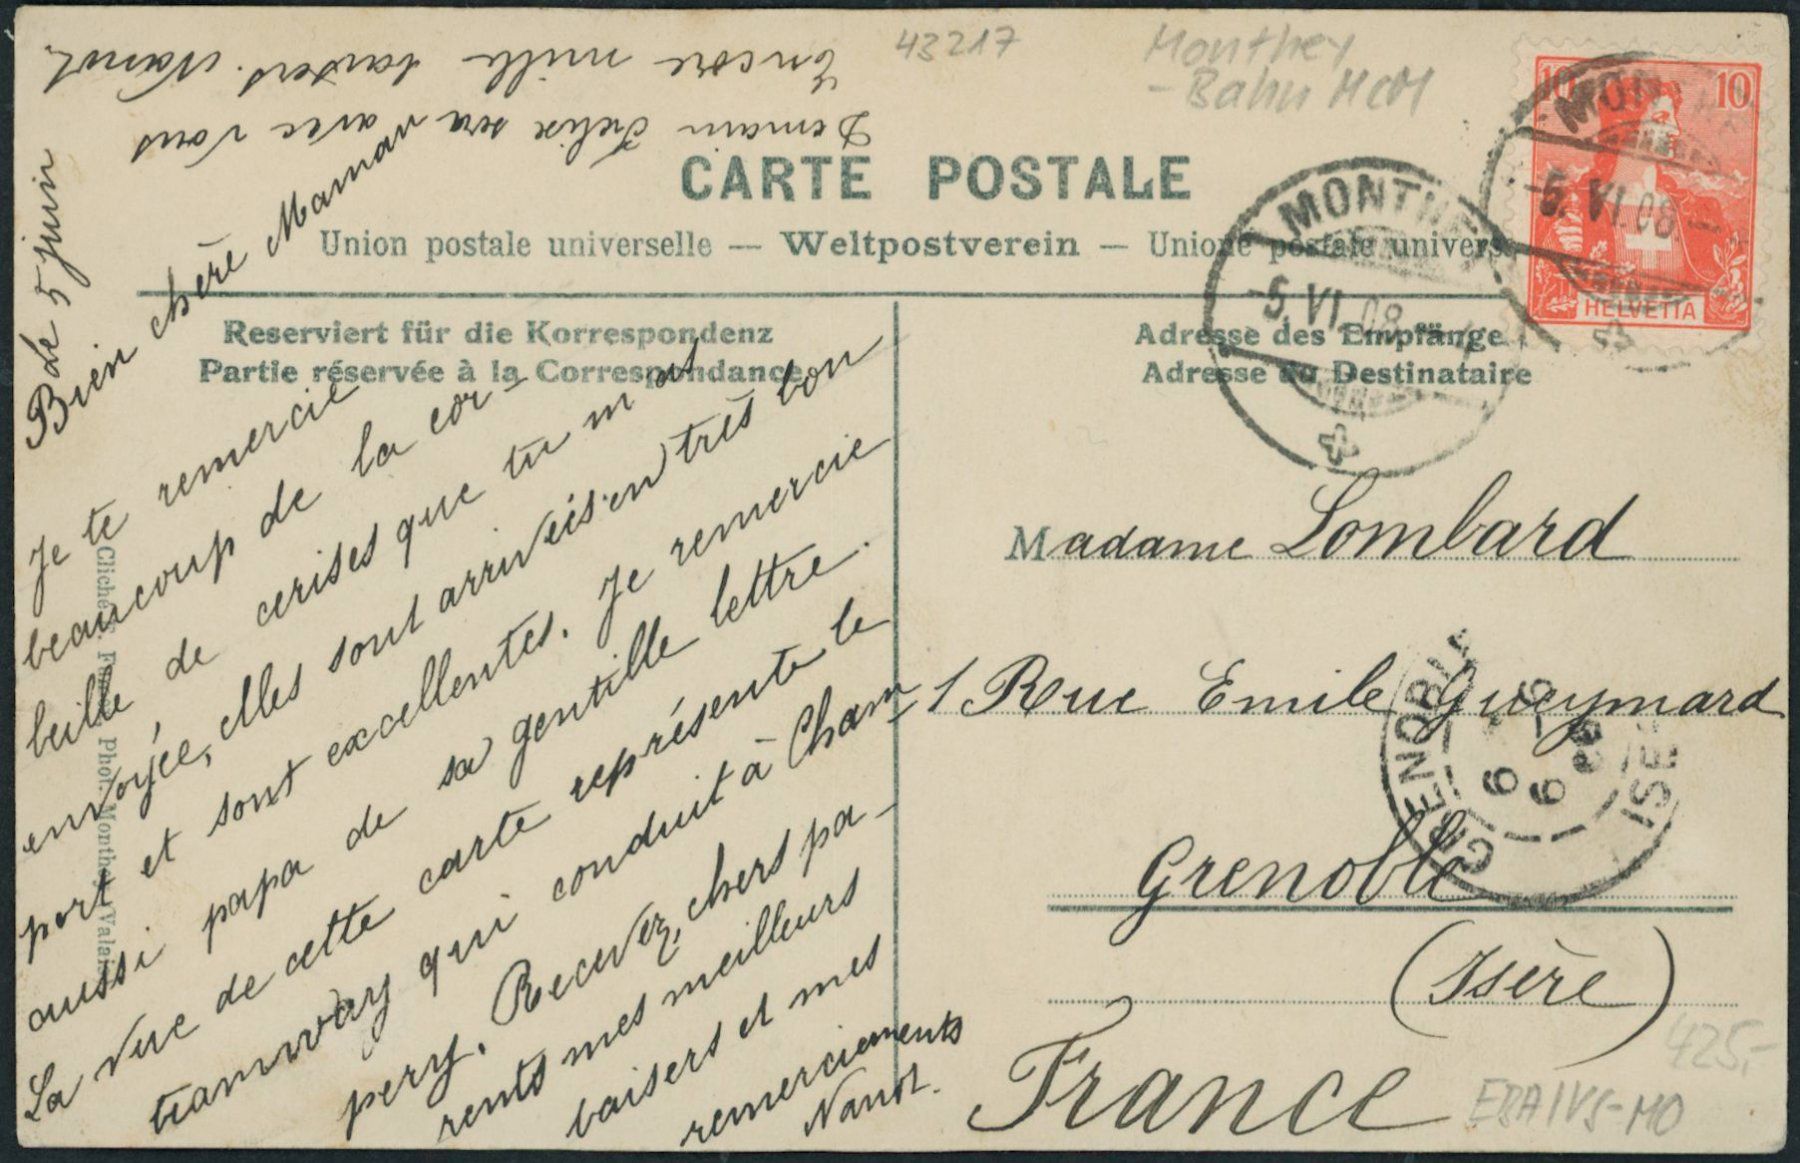 43217
Monthey
- Bahn MCM
CARTE POSTALE
Union postale universelle — Weltpostverein — Unione postale univers
Reserviert für die Korrespondenz
Partie réservée à la Correspondance
Adresse des Empfänge
Adresse du Destinataire
HELVETIA
10 10
MONTHEY
-5.VI.08.-
MONTHEY
-5.VI.08.-
Le 5 juin
Bien chère Maman
Je te remercie
beaucoup de la cor-
beille de cerises que tu m'as
envoyée, elles sont arrivées en très bon
port et sont excellentes. Je remercie
aussi papa de sa gentille lettre.
La vue de cette carte représente le
tramway qui conduit à Cham-
pery. Recevez, chers pa-
rents mes meilleurs
baisers et mes
remerciements
Nanot.
Demain Félix sera avec vous
Encore mille baisers. Nanot
Madame Lombard
1 Rue Emile Gueymard
Grenoble
(Isère)
France
GRENOBLE
6 - 6
08
ISÈ
Phot. Monthey (Valais)
425,-
EBA/VS-MO